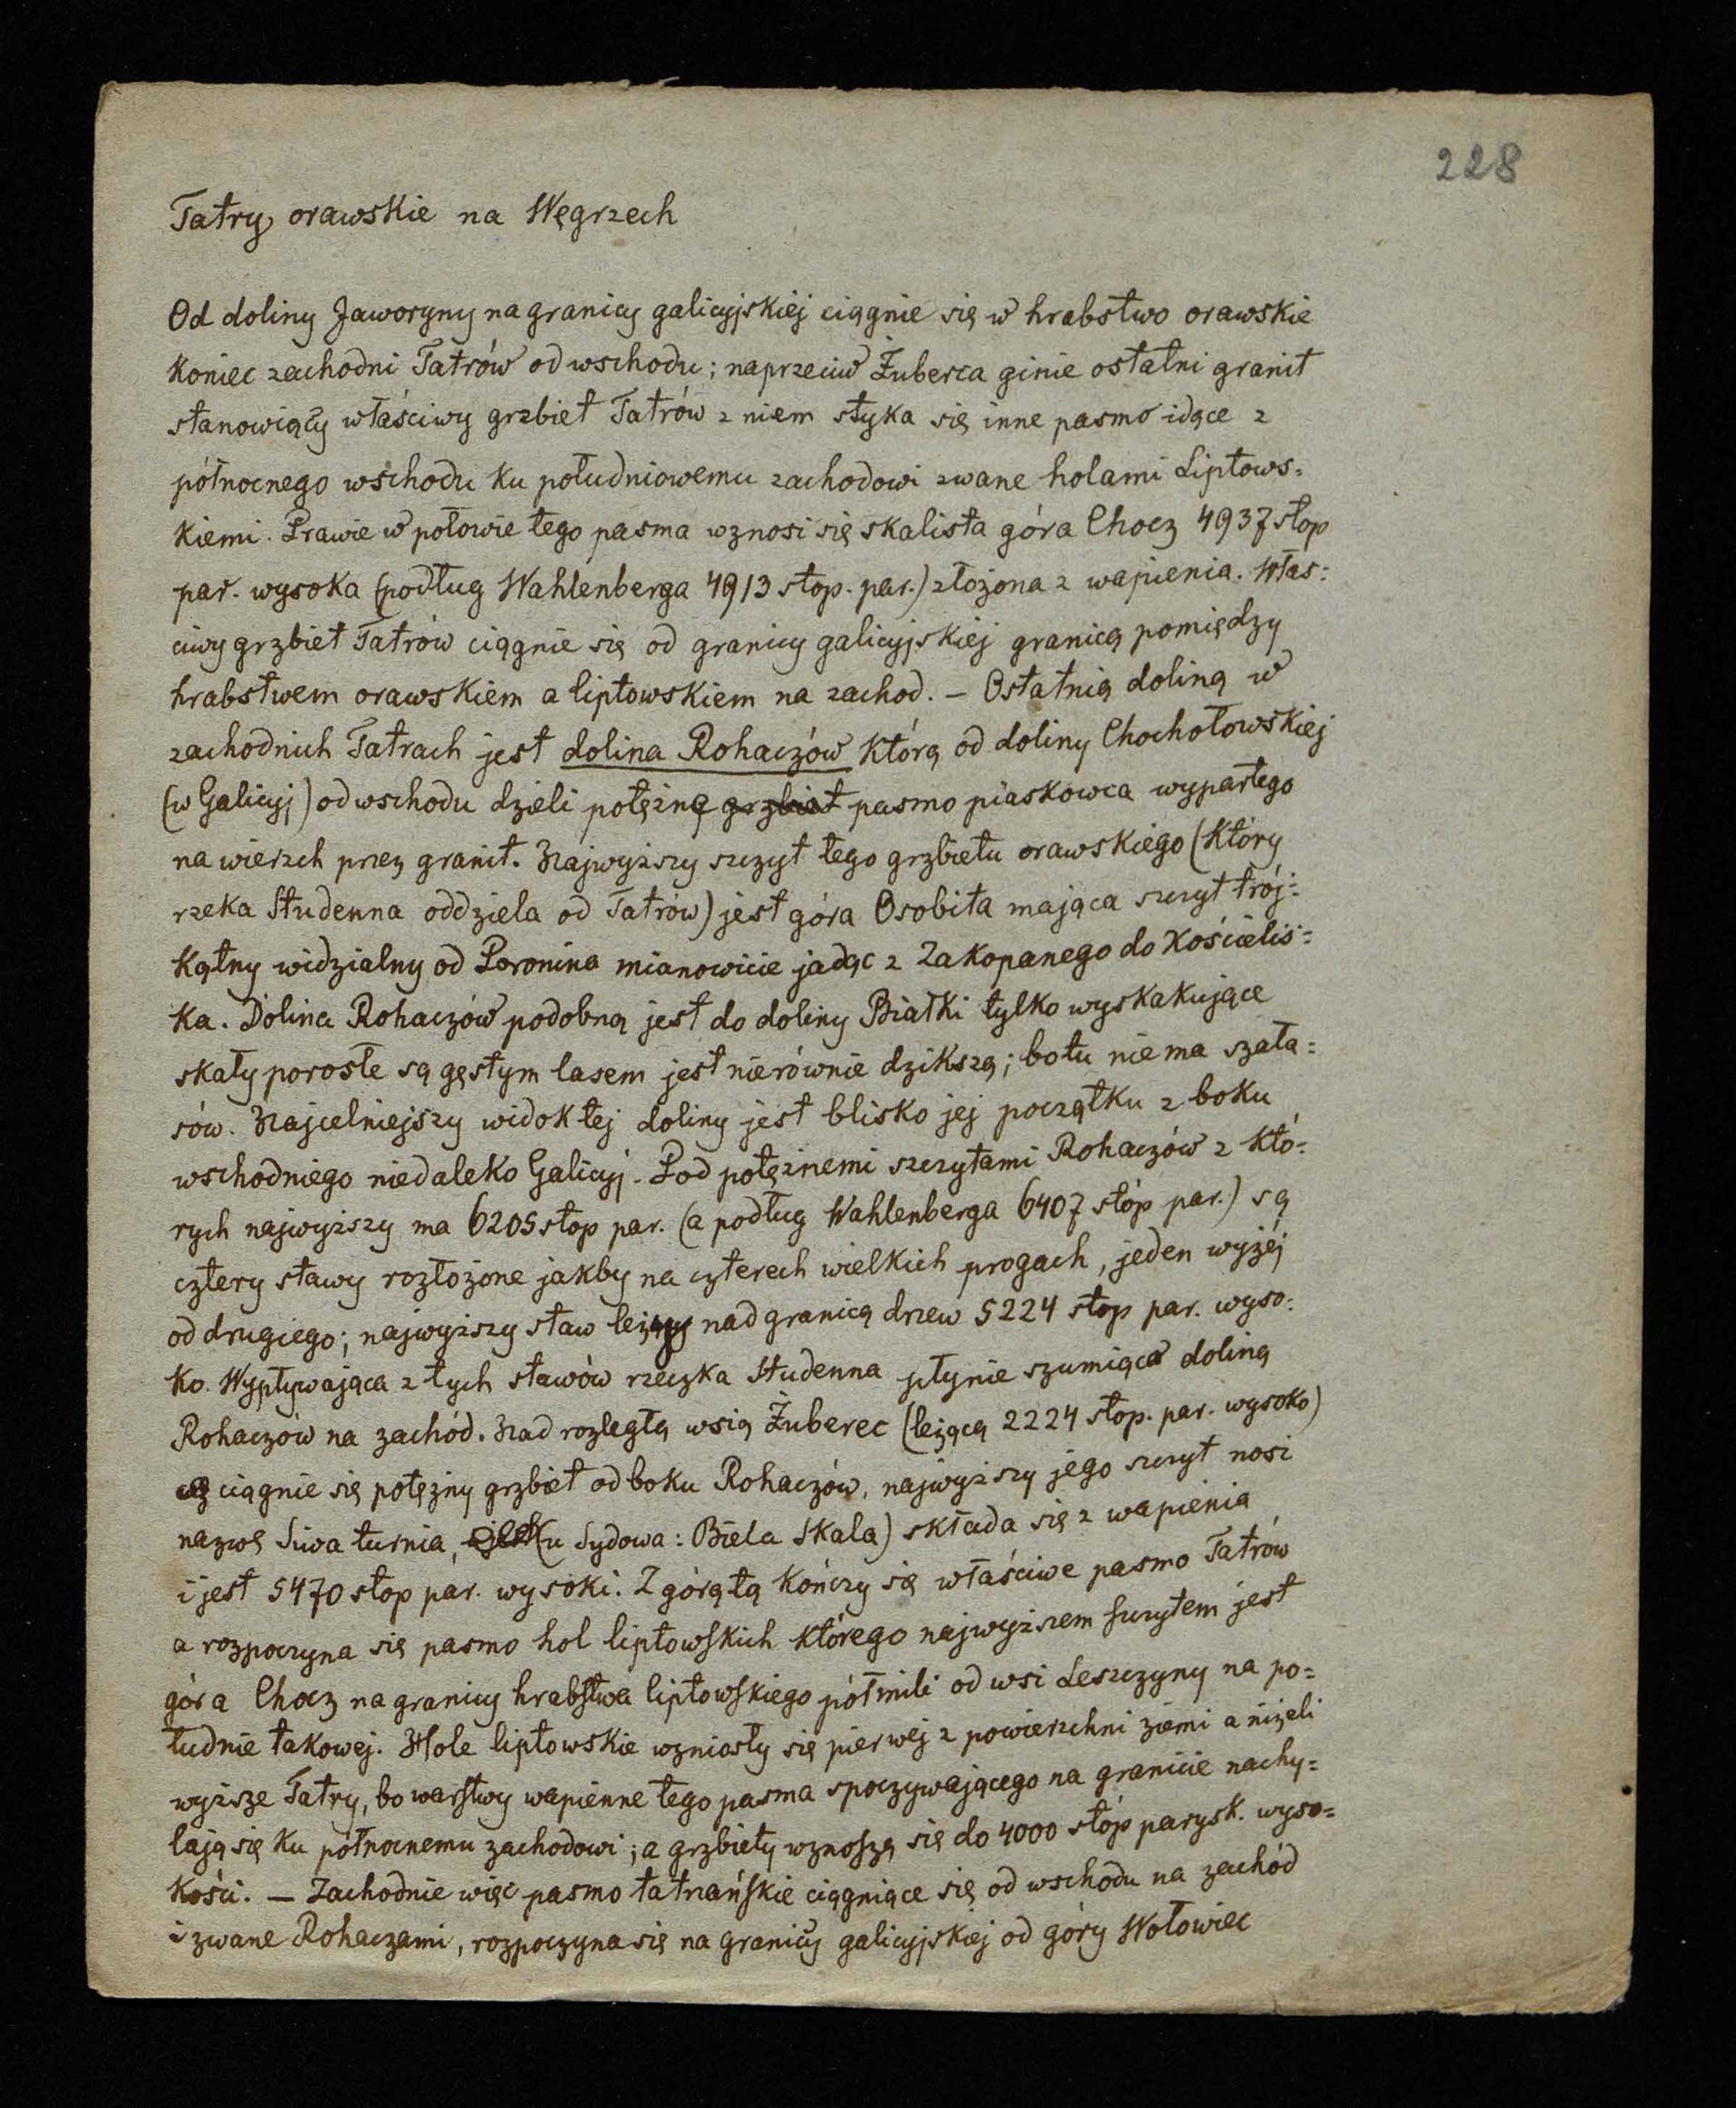 228
Tatry orawskie na Węgrzech
Od doliny Jaworyny na granicy galicyjskiej ciągnie się w hrabstwo orawskie
koniec zachodni Tatrów od wschodu; naprzeciw Żuberca ginie ostatni granit
stanowiący właściwy grzbiet Tatrów z niem styka się inne pasmo idące z
północnego wschodu ku południowemu zachodowi zwane holami Liptows=
kiemi. Prawie w połowie tego pasma wznosi się skalista góra Chocz 4937 stop
par. wysoka (podług Wahlenberga 4913 stop. par.) złożona z wapienia. Włas=
ciwy grzbiet Tatrów ciągnie się od granicy galicyjskiej granicą pomiędzy
hrabstwem orawskiem a liptowskiem na zachod. — Ostatnią doliną w
zachodnich Tatrach jest dolina Rohaczów którą od doliny Chochołowskiej
(w Galicyj) od wschodu dzieli potężne grzbiet pasmo piaskowca wypartego
na wierzch przez granit. Najwyższy szczyt tego grzbietu orawskiego (który
rzeka Studenna oddziela od Tatrów) jest góra Osobita mająca szczyt trój=
kątny widzialny od Poronina mianowicie jadąc z Zakopanego do Kościelis=
ka. Dolina Rohaczów podobną jest do doliny Białki tylko wyskakujące
skały porosłe są gęstym lasem jest nierównie dzikszą; bo tu nie ma szała=
sów. Najcelniejszy widok tej doliny jest blisko jej początku z boku
wschodniego niedaleko Galicyj. Pod potężnemi szczytami Rohaczów z któ=
rych najwyższy ma 6205 stop par. (a podług Wahlenberga 6407 stóp par.) są
cztery stawy rozłożone jakby na czterech wielkich progach, jeden wyżéj
od drugiego; najwyższy staw leży nad granicą drzew 5224 stop par. wyso=
ko. Wypływająca z tych stawów rzeczka Studenna płynie szumiąca doliną
Rohaczów na zachód. Nad rozległą wsią Żuberec (leżącą 2224 stop. par. wysoko)
ciągnie się potężny grzbiet od boku Rohaczów, najwyższy jego szczyt nosi
nazwę Siwa turnia, (u Sydowa: Biela Skala) składa się z wapienia
i jest 5470 stop par. wysoki. Z górą tą kończy się właściwe pasmo Tatrów
a rozpoczyna się pasmo hol liptowskich którego najwyższem szczytem jest
góra Chocz na granicy hrabstwa liptowskiego półmili od wsi Leszczyny na po=
łudnie takowej. Hole liptowskie wzniosły się pierwej z powierzchni ziemi a niżeli
wyższe Tatry, bo warstwy wapienne tego pasma spoczywającego na granicie nachy=
lają się ku północnemu zachodowi; a grzbiety wznoszą się do 4000 stóp parysk. wyso=
kości. — Zachodnie więc pasmo tatrzańskie ciągniące się od wschodu na zachód
i zwane Rohaczami, rozpoczyna się na granicy galicyjskiej od góry Wołowiec